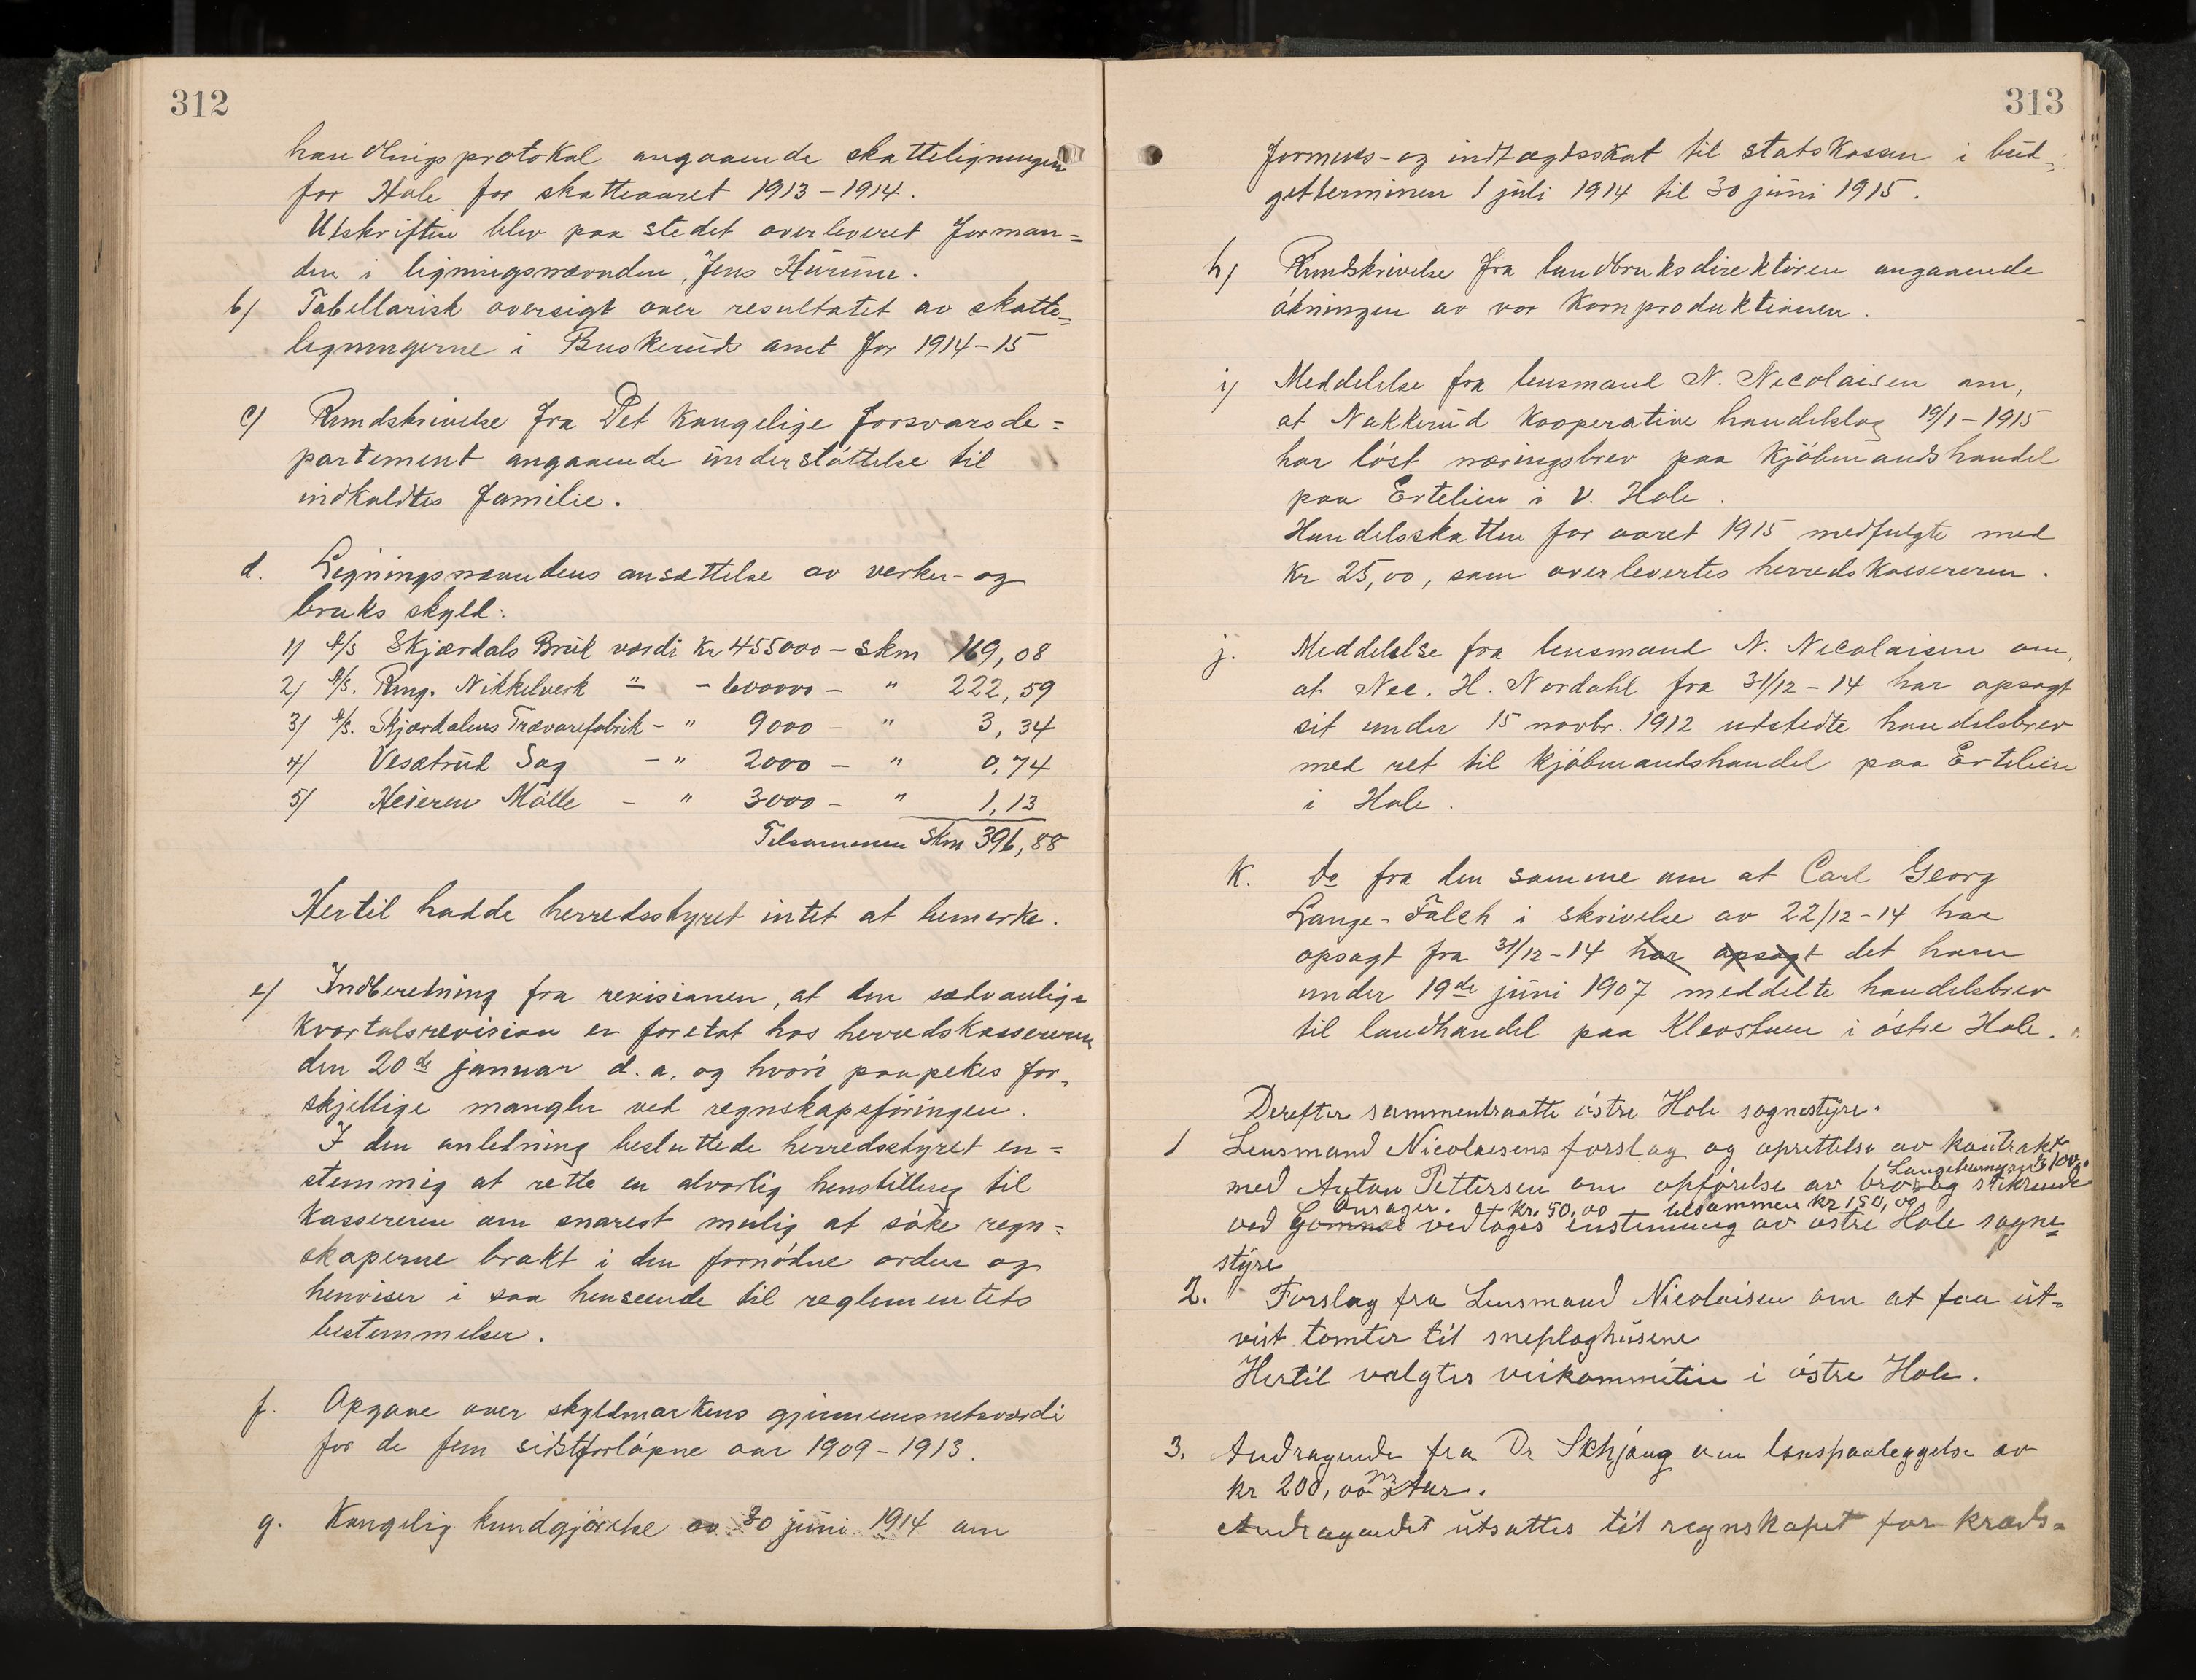 312
handlingsprotokol angaaende skatteligningen
for Hole for skatteaaret 1913-1914.
Utskriften blev paa stedet overleveret forman=
den i ligningsnævnden, Jens Hurum.
b) Tabellarisk oversigt over resultatet av skatte=
ligningerne i Buskeruds amt for 1914-15
c) Rundskrivelse fra Det Kongelige forsvarsde=
partement angaaende understöttelse til
indkaldtes familie.
d. Ligningsnævndens ansættelse av verker- og
bruks skyld:
1) A/S Skjærdals Bruk værdi Kr 455000 - skm 169,08
2) A/S. Ring. Nikkelverk " - 600000 - " 222,59
3) A/S. Skjærdalens Trævarefabrik - " 9000 - " 3,34
4) Vesætrud Sag - " 2000 - " 0,74
5) Heieren Mölle - " 3000 - " 1,13
Tilsammen Skm 396,88
Hertil hadde herredsstyret intet at bemerke.
e) Indberetning fra revisionen, at den sædvanlige
kvartalsrevision er foretat hos herredskassereren
den 20de januar d.a. og hvori paapekes for=
skjellige mangler ved regnskapsföringen.
I den anledning besluttede herredsstyret en=
stemmig at rette en alvorlig henstilling til
Kassereren om snarest mulig at söke regn=
skaperne brakt i den fornödne orden og
henviser i saa henseende til reglementets
bestemmelser.
f. Opgave over skyldmarkens gjennemsnetsværdi
for de fem sidstforlöpne aar 1909-1913.
g. Kongelig kundgjörelse av 30 juni 1914 om
313
formues- og indtægtsskat til statskassen i bud=
getterminen 1 juli 1914 til 30 juni 1915.
h) Rundskrivelse fra landbruksdirektören angaaende
ökningen av vor Kornproduktionen.
i) Meddelelse fra lensmand N. Nicolaisen om,
at Nakkerud Kooperative handelslag 19/1-1915
har löst næringsbrev paa Kjöbmandshandel
paa Ertelien i V. Hole.
Handelsskatten for aaret 1915 medfulgte med
Kr 25,00, som overlevertes herredskassereren.
j. Meddelelse fra lensmand N. Nicolaisen om,
at Nec. H. Nordahl fra 31/12-14 har opsagt
sit under 15 novbr. 1912 utstedte handelsbrev
med ret til kjöbmandshandel paa Ertelien
i Hole.
K. Do fra den samme om at Carl Georg
Lange-Falch i skrivelse av 22/12-14 har
opsagt fra 31/12-14 har opsagt det ham
under 19de juni 1907 meddelte handelsbrev
til landhandel paa Klevstuen i östre Hole.
Derefter sammentraatte östre Hole sognestyre.
1 Lensmand Nicolaisens forslag og oprettelse av kontrakt
med Anton Pettersen om opförelse av bro og stikrende
ved Gomnæs vedtages enstemmig av östre Hole sogne=
Onsager. Kr. 50,00 tilsammen kr 150,00
styre
2. Forslag fra Lensmand Nicolaisen om at faa ut=
vist tomter til sneploghusene
Hertil valgtes veikommitéen i östre Hole.
3. Andragende fra Dr Schjöng om lönspaaleggelse av
kr 200,00 aar.
Andragendet utsattes til regnskapet for kreds=